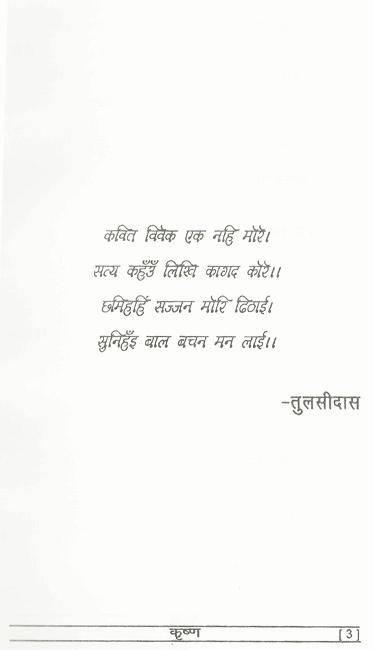 कवित विवेक एक नहि मोरे।
सत्य कहउँ लिखि कागद कोरे।।
छमिहहिँ सज्जन मोरि ढिठाई।
सुनिहँइ बाल बचन मन लाई।।
–तुलसीदास
कृष्ण [ 3 ]